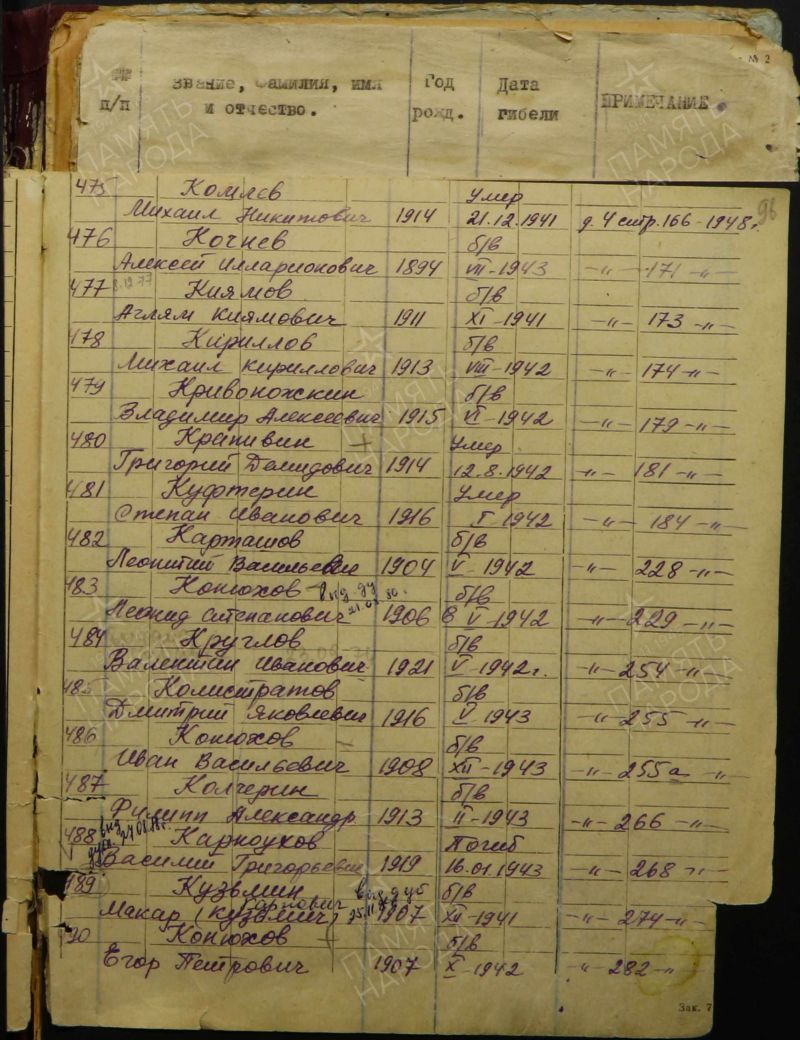 № 2
№№ Звание, фамилия, имя Год Дата
п/п и отчество. рожд. гибели ПРИМЕЧАНИЕ
96
475 Комлев Умер
Михаил Никитович 1914 21.12.1941 д. 4 стр. 166 - 1948 г.
476 Кочнев б/в
Алексей Илларионович 1894 VII - 1943 -"- 171 -"-
477 Киямов б/в
8.12.77
Аглям Киямович 1911 XI - 1941 -"- 173 -"-
478 Кириллов б/в
Михаил Кириллович 1913 VIII - 1942 -"- 174 -"-
479 Кривоножскин б/в
Владимир Алексеевич 1915 VI - 1942 -"- 179 -"-
480 Крапивин + Умер
Григорий Демидович 1914 12.8.1942 -"- 181 -"-
481 Куфтерин Умер
Степан Иванович 1916 I - 1942 -"- 184 -"-
482 Карташов б/в
Леонтий Васильевич 1904 V - 1942 -"- 228 -"-
483 Конюхов б/в
Леонид Степанович 1906 V - 1942 -"- 229 -"-
484 Круглов б/в
Валентин Иванович 1921 V - 1942 г. -"- 254 -"-
485 Колистратов б/в
Дмитрий Яковлевич 1916 V - 1943 -"- 255 -"-
486 Конюхов б/в
Иван Васильевич 1908 XII - 1943 -"- 255а -"-
487 Колчерин б/в
Филипп Александр. 1913 II - 1943 -"- 266 -"-
488 Карноухов Погиб
Василий Григорьевич 1919 16.01.1943 -"- 268 -"-
489 Кузьмин б/в
выд. дуб
Макар (Кузьмич) 1907 XII - 1941 -"- 274 -"-
490 Конюхов + б/в
Егор Петрович 1907 X - 1942 -"- 282 -"-
Зак. 7
ПАМЯТЬ НАРОДА